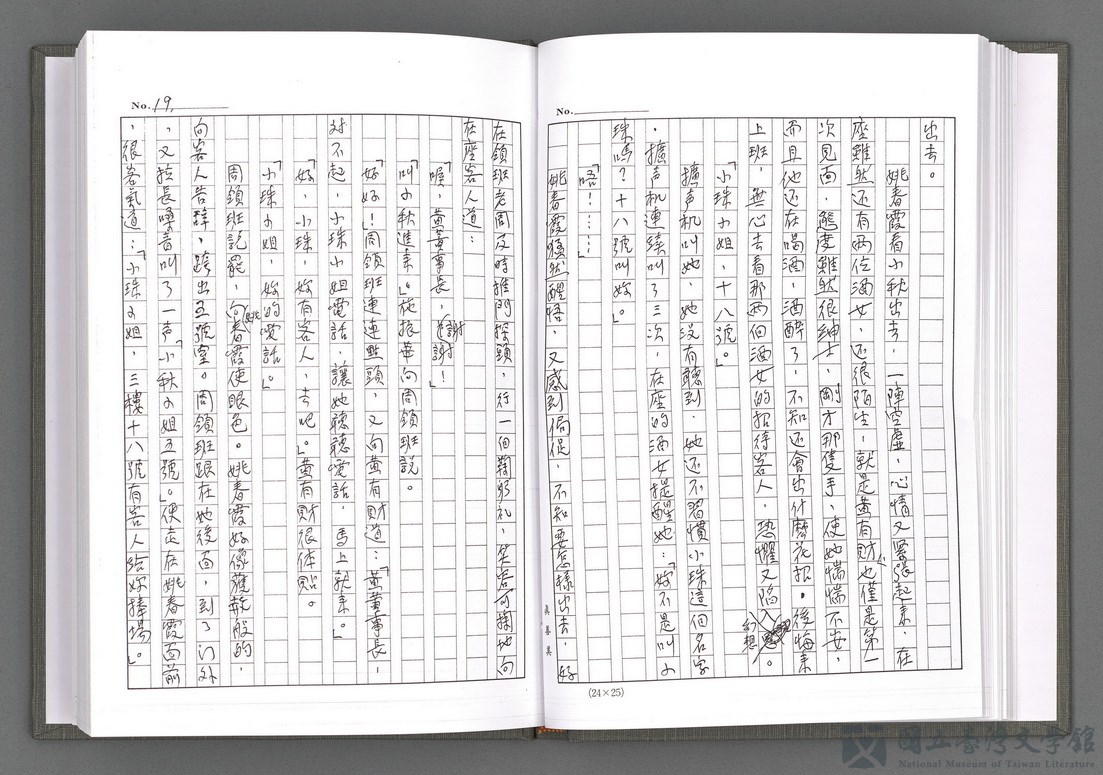 No.
出去。
姚春霞看小秋出去,一陣空虛,心情又緊張起來,在
座雖然还有两位酒女,还很陌生,就是黃有財也僅是第一
次見面,態度雖然很紳士,剛才那隻手,使她惴惴不安,
而且他还在喝酒,酒醉了,不知还會出什麼花招。後悔來
上班,無心去看那两個酒女的招待客人,恐懼又陷入幻想。
「小珠小姐,十八號。」
擴声机叫她,她没有聽到,她还不習慣小珠這個名字
,擴声机連續叫了三次,在座的酒女提醒她:「妳不是叫小
珠嗎?十八號叫妳。」
「唔!……」
姚春霞驟然醒悟,又感到侷促,不知要怎樣出去,好
真善美
(24×25)
No. 19.
在領班老周及時推門探頭,行一個鞠躬礼,笑容可掬地向
在座客人道:
「喉,黃董事長,謝謝!」
「叫小秋進來。」花振華向周領班説。
「好好!」周領班連連點頭,又向黃有財道:「黃董事長,
对不起,小珠小姐電話,讓她聽聽電話,馬上就來。」
「好,小珠,妳有客人,去吧。」黃有財很体貼。
「小珠小姐,妳的電話。」
周領班説罷,向春霞使眼色。姚春霞好像獲救般的,
向客人告辞,跨出五號室。周領班跟在她後面,到了门外
,又拉長嗓音叫了一声「小秋小姐五號」。便走在姚春霞面前
,很客氣道:「小珠小姐,三樓十八號有客人給妳捧場。」
國立臺灣文學館
National Museum of Taiwan Literature